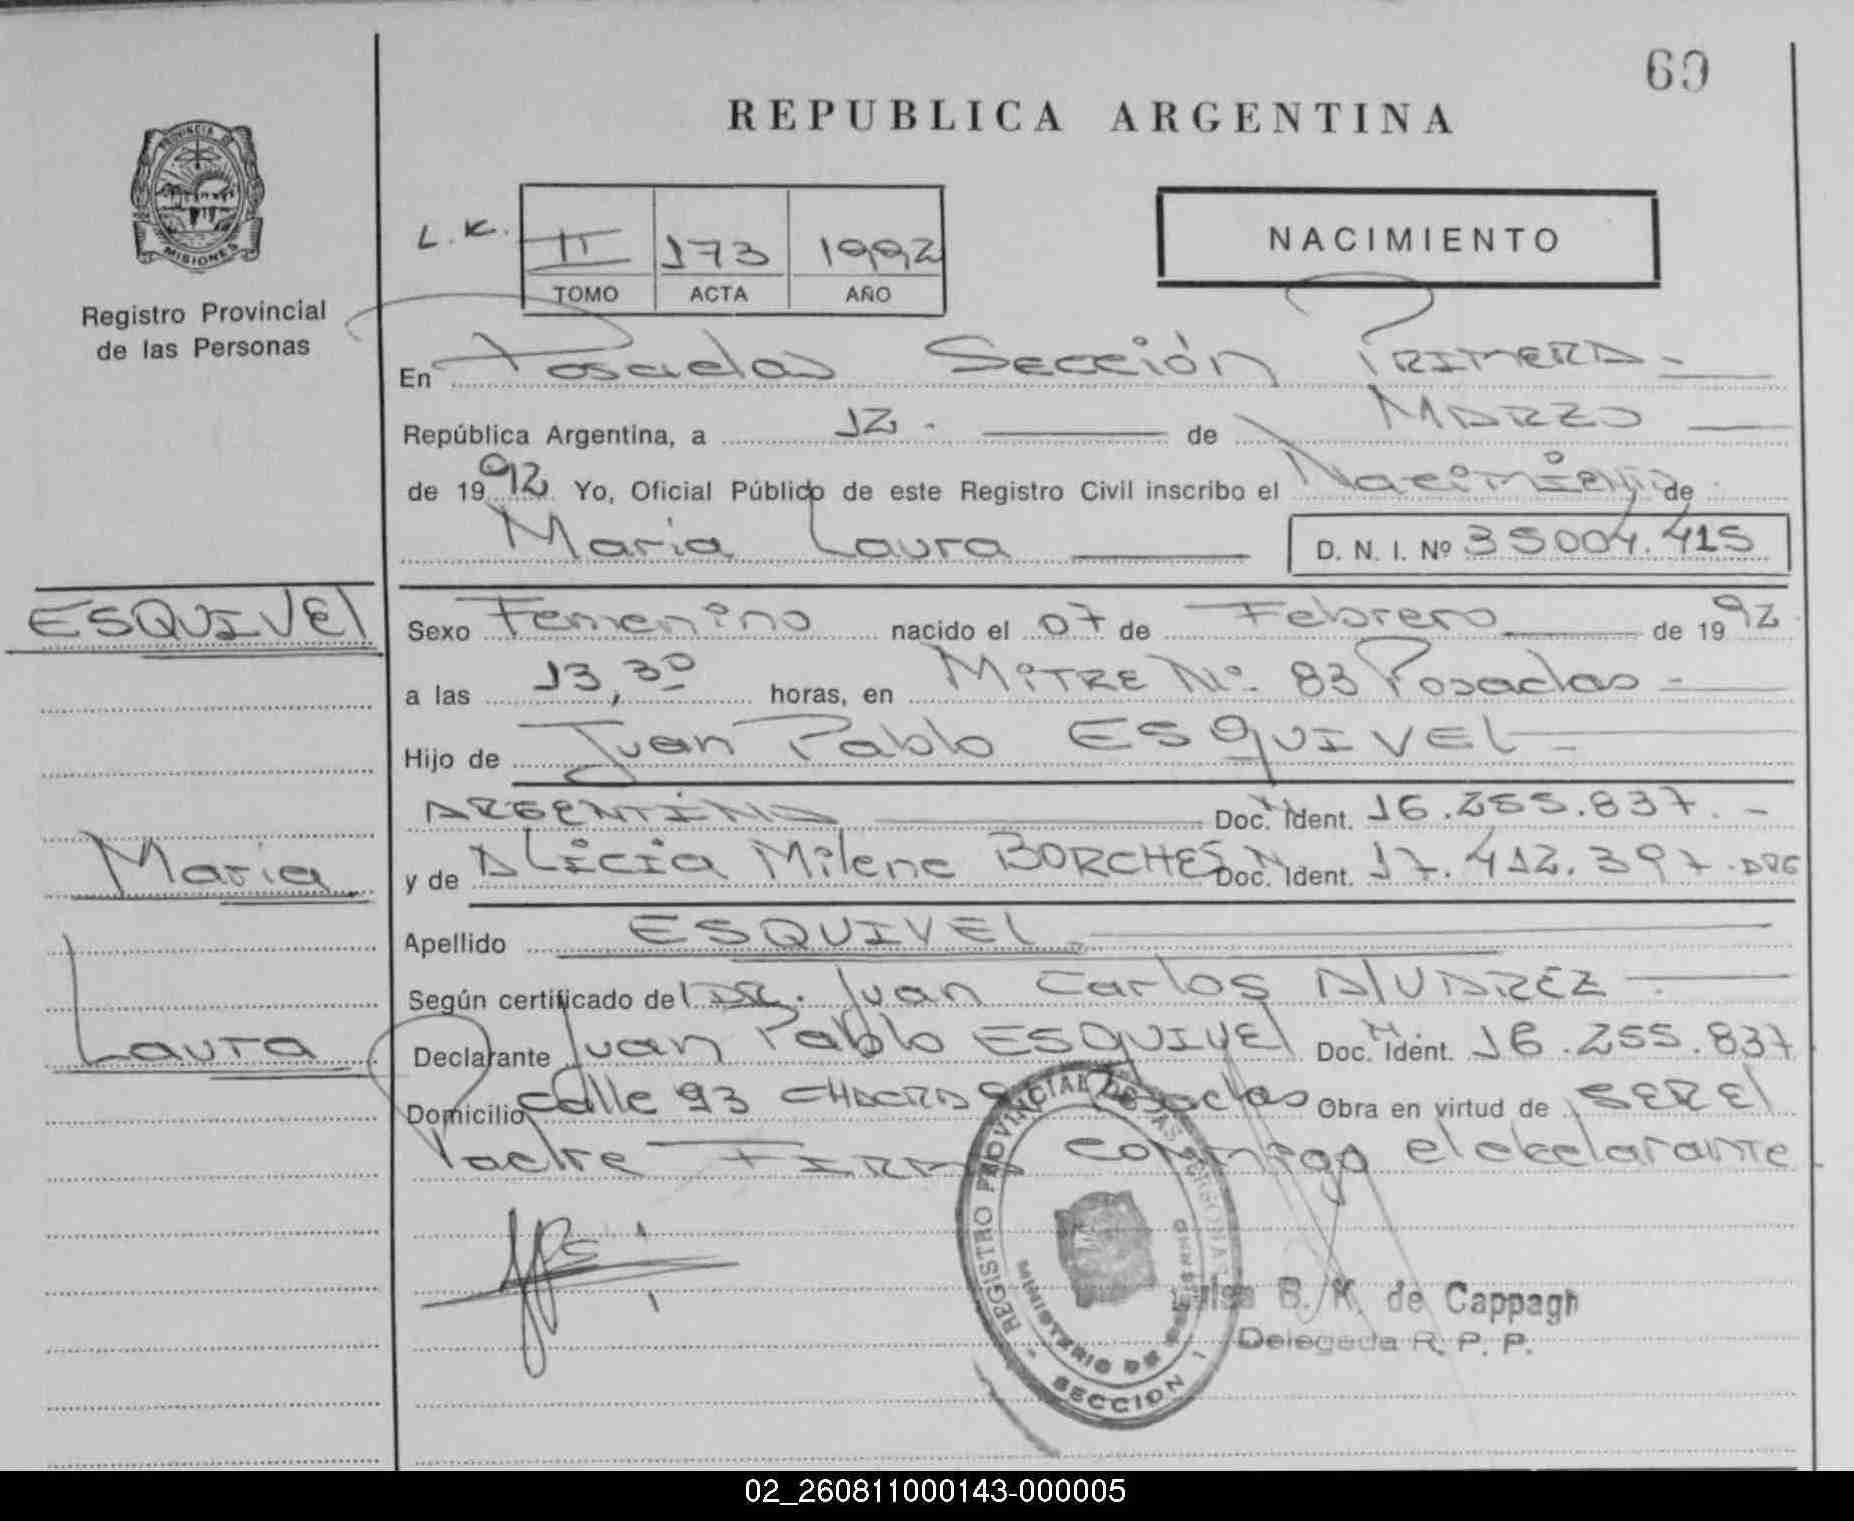 69
REPUBLICA ARGENTINA
PROVINCIA DE
MISIONES
Registro Provincial
de las Personas
L. K.
II 173 1992
TOMO ACTA AÑO
NACIMIENTO
En Posadas Sección PRIMERA -
República Argentina, a 12. de MARZO
de 1992 Yo, Oficial Público de este Registro Civil inscribo el Nacimiento de
Maria Laura D. N. I. Nº 35004.415
ESQUIVEl
Sexo Femenino nacido el 07 de Febrero de 1992.
a las 13,30 horas, en MiTRE Nº. 83 Posadas -
Hijo de Juan Pablo ESQUIVEl -
ARGENTINA Doc. N. Ident. 16.255.837. -
Maria
y de Alicia Milene BORCHES Doc. N. Ident. 17.412.397. ARG
Apellido ESQUIVEl -
Según certificado del DR. Juan Carlos AlVAREZ - .
Laura
Declarante Juan Pablo ESQUIVEl Doc. N. Ident. 16.255.837
Domicilio Calle 93 CHACRA Posadas Obra en virtud de SEREl
Padre FIRMA conmigo el declarante
REGISTRO PROVINCIAL DE LAS PERSONAS
MINISTERIO DE GOBIERNO
SECCION 1
B. K. de Cappagh
Delegada R. P. P.
02_260811000143-000005